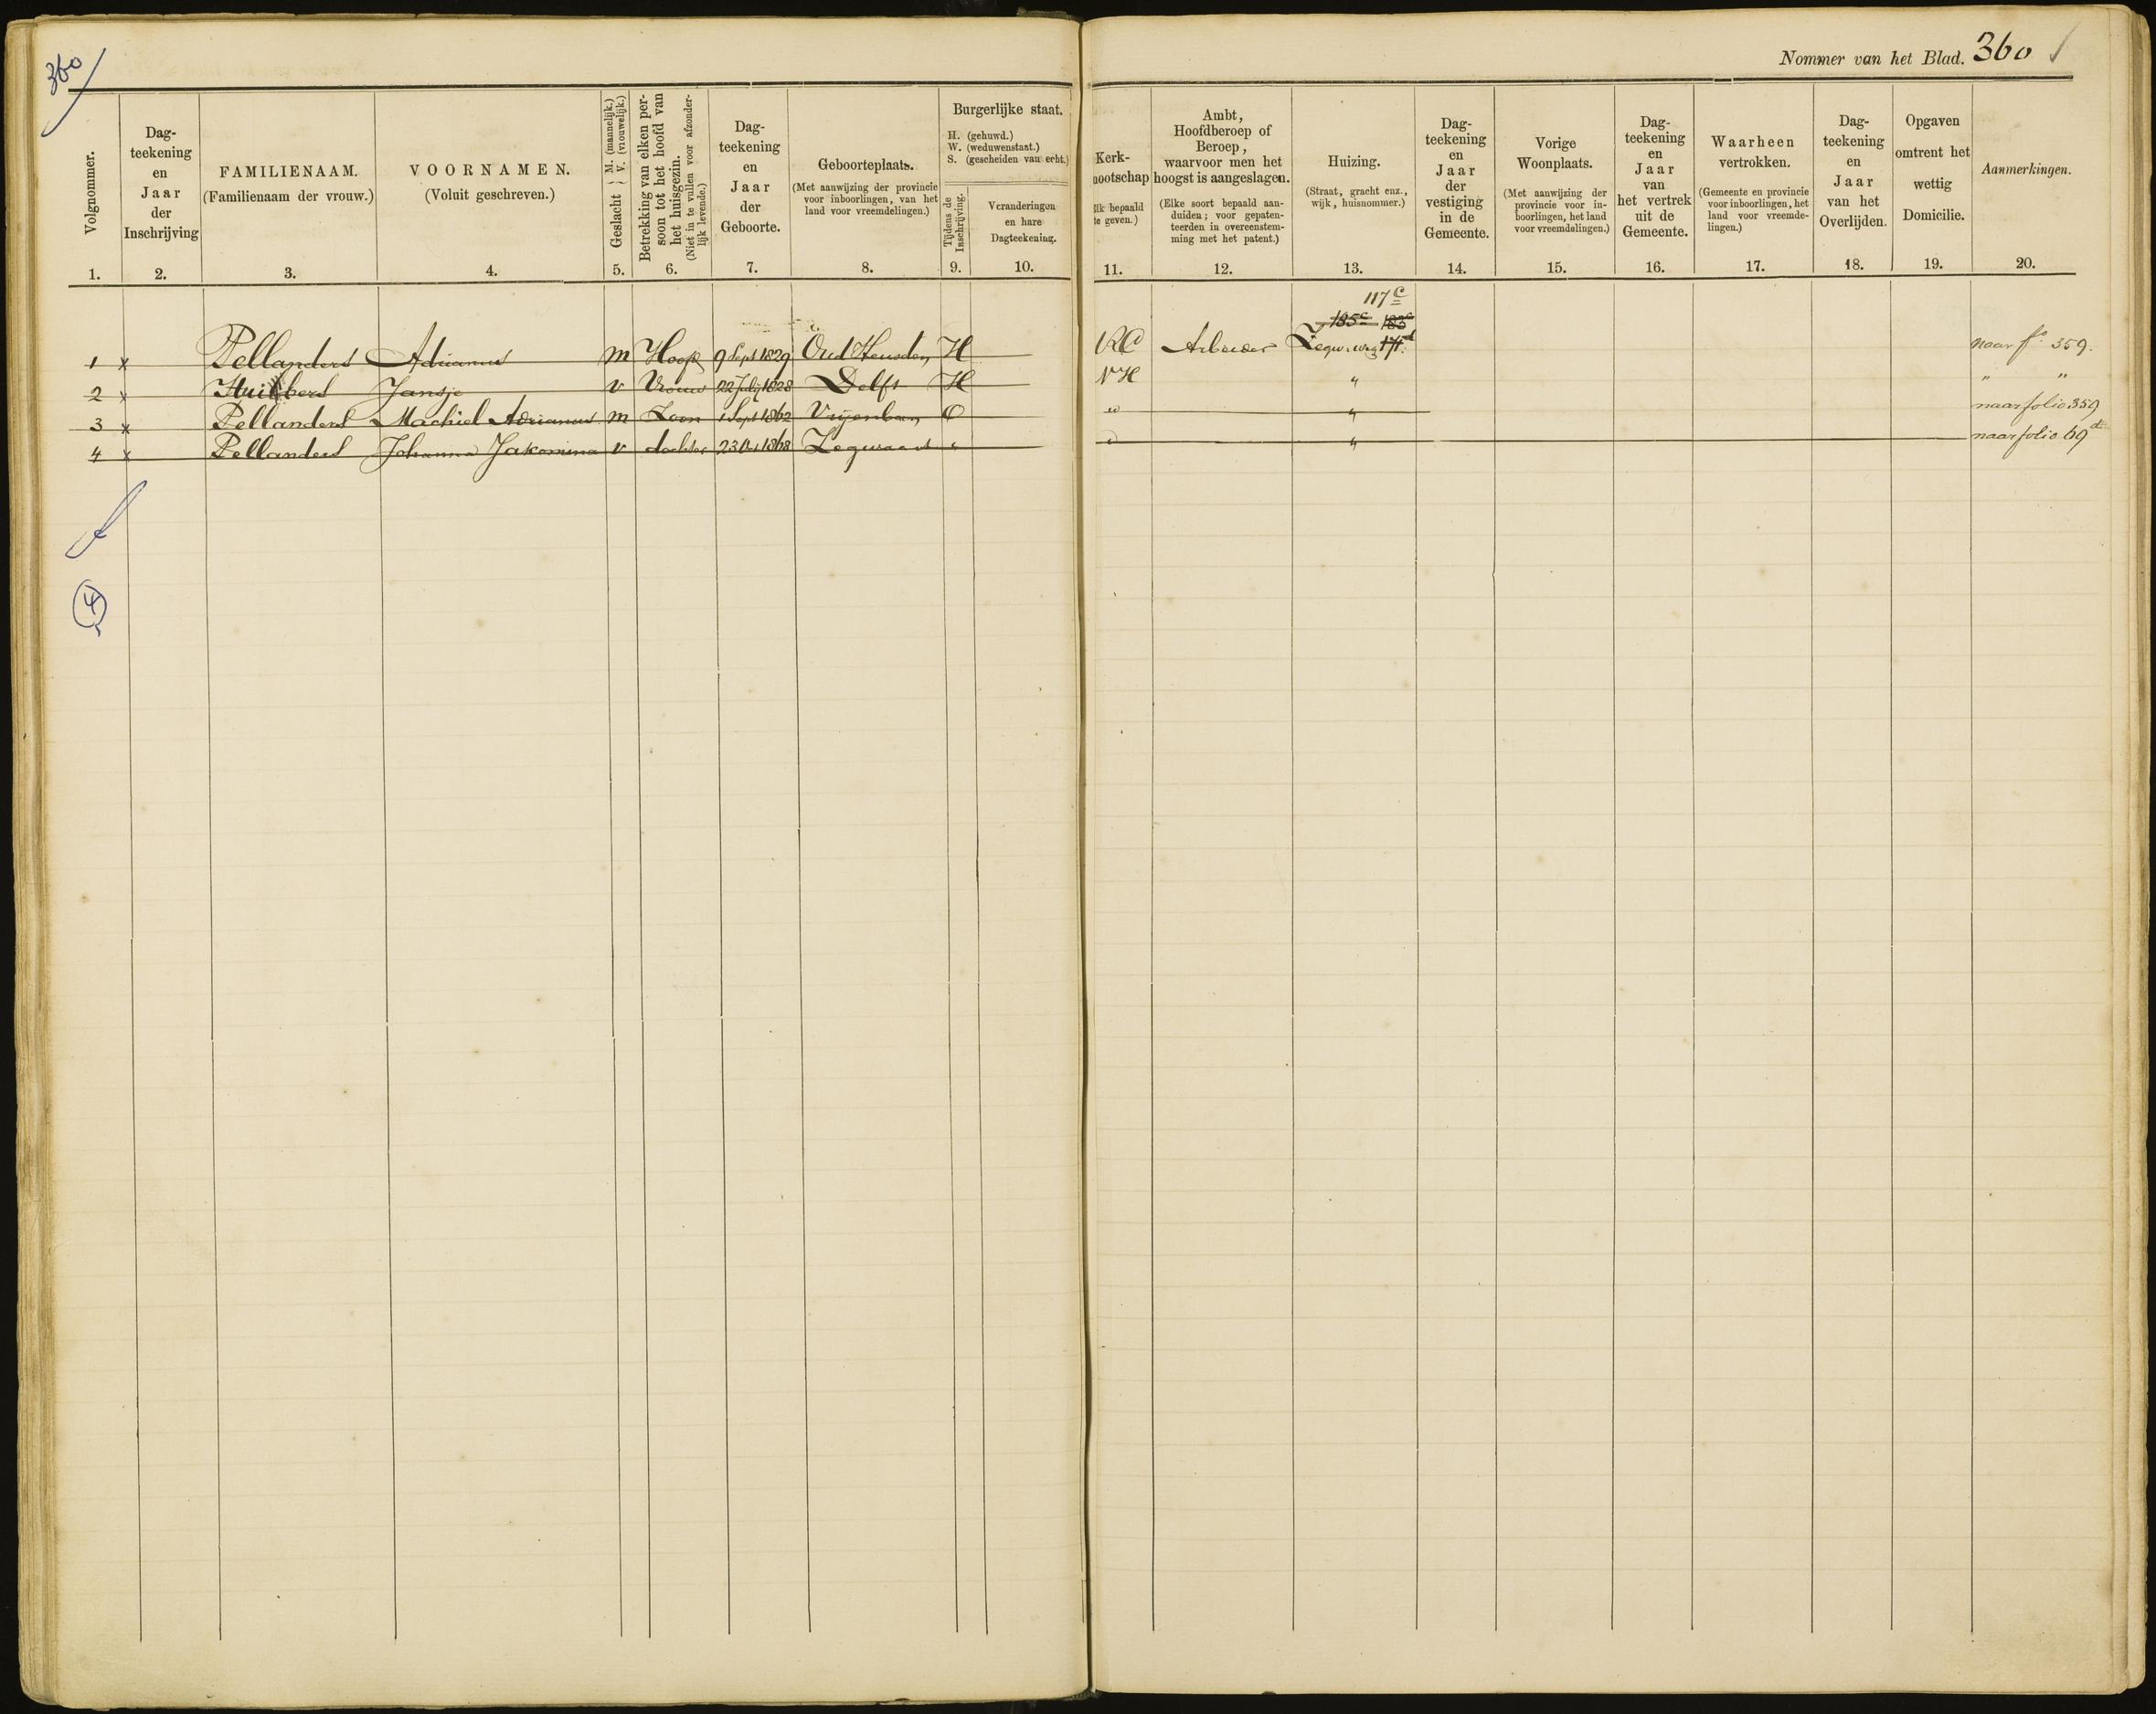 360
Nommer van het Blad. 360
Volgnommer.
Dag-
teekening
en
Jaar
der
Inschrijving
FAMILIENAAM.
(Familienaam der vrouw.)
VOORNAMEN.
(Voluit geschreven.)
Geslacht { M. (mannelijk.) V. (vrouwelijk.)
Betrekking van elken per-
soon tot het hoofd van
het huisgezin.
(Niet in te vullen voor afzonder-
lijk levende.)
Dag-
teekening
en
Jaar
der
Geboorte.
Geboorteplaats.
(Met aanwijzing der provincie
voor inboorlingen, van het
land voor vreemdelingen.)
Burgerlijke staat.
H. (gehuwd.)
W. (weduwenstaat.)
S. (gescheiden van echt.)
Tijdens de
Inschrijving.
Veranderingen
en hare
Dagteekening.
Kerk-
nootschap
lk bepaald
te geven.)
Ambt,
Hoofdberoep of
Beroep,
waarvoor men het
hoogst is aangeslagen.
(Elke soort bepaald aan-
duiden; voor gepaten-
teerden in overeenstem-
ming met het patent.)
Huizing.
(Straat, gracht enz.,
wijk, huisnommer.)
Dag-
teekening
en
Jaar
der
vestiging
in de
Gemeente.
Vorige
Woonplaats.
(Met aanwijzing der
provincie voor in-
boorlingen, het land
voor vreemdelingen.)
Dag-
teekening
en
Jaar
van
het vertrek
uit de
Gemeente.
Waarheen
vertrokken.
(Gemeente en provincie
voor inboorlingen, het
land voor vreemde-
lingen.)
Dag-
teekening
en
Jaar
van het
Overlijden.
Opgaven
omtrent het
wettig
Domicilie.
Aanmerkingen.
1. 2. 3. 4. 5. 6. 7. 8. 9. 10. 11. 12. 13. 14. 15. 16. 17. 18. 19. 20.
117 c
185 c 183 c
1 x Pellanders Adrianus m Hoofd 9 Sept 1829 Oud Heusden H RC Arbeider Zegw. weg naar fo 359.
2 x Huibers Jansje v Vrouw 22 Julij 1828 Delft H NH " " "
3 x Pellanders Machiel Adrianus m Zoon 1 Sept 1862 Vrijenban O " " naar folio 359
4 x Pellanders Johanna Jakomina v dochter 23 Oct 1868 Zegwaart " " " naar folio 69 d
4